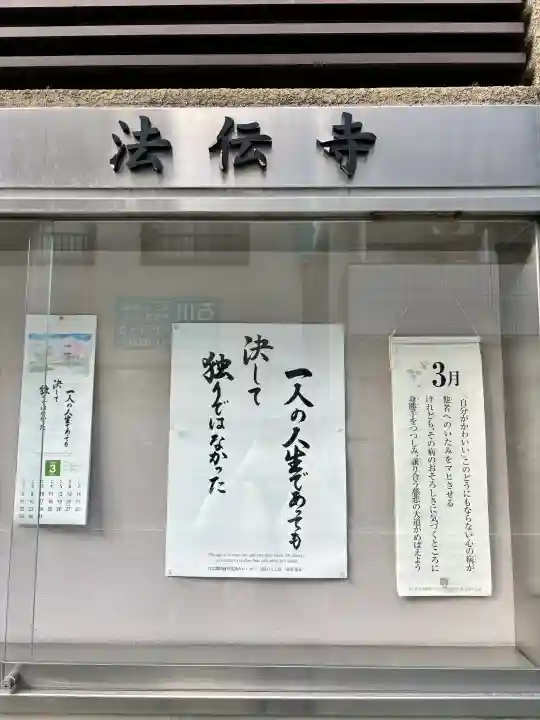 法伝寺
一人の人生であっても
決して
独りではなかった
3
一人の人生であっても
決して
独りではなかった
3月
〝自分がかわいい〟このどうにもならない心の病が
他者へのいたみをマヒさせる
けれども、その病のおそろしさに気づくところに
身勝手をつつしみ、譲り合う慈悲の大道がめばえよう